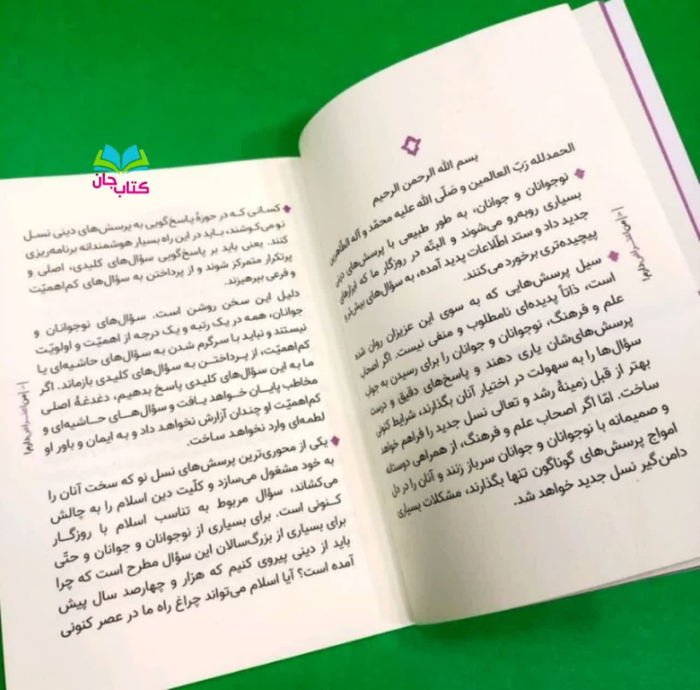 بسم الله الرحمن الرحیم
الحمدلله ربّ العالمین و صلّی الله علیه محمّد و آله الطّاهرین
نوجوانان و جوانان، به طور طبیعی با پرسش‌های دینی
بسیاری روبه‌رو می‌شوند و البتّه در روزگار ما که ابزارهای
جدید داد و ستد اطّلاعات پدید آمده، به سؤال‌های بیش‌تر و
پیچیده‌تری برخورد می‌کنند.
سیل پرسش‌هایی که به سوی این عزیزان روان شده
است، ذاتاً پدیده‌ای نامطلوب و منفی نیست. اگر اصحاب
علم و فرهنگ، نوجوانان و جوانان را برای رسیدن به جواب
پرسش‌های‌شان یاری دهند و پاسخ‌های دقیق و درست
سؤال‌ها را به سهولت در اختیار آنان بگذارند، شرایط کنونی
بهتر از قبل زمینهٔ رشد و تعالی نسل جدید را فراهم خواهد
ساخت. امّا اگر اصحاب علم و فرهنگ، از همراهی دوستانه
و صمیمانه با نوجوانان و جوانان سرباز زنند و آنان را در دل
امواج پرسش‌های گوناگون تنها بگذارند، مشکلات بسیاری
دامن‌گیر نسل جدید خواهد شد.
کتاب جان
کسانی که در حوزهٔ پاسخ‌گویی به پرسش‌های دینی نسل
نو می‌کوشند، باید در این راه بسیار هوشمندانه برنامه‌ریزی
کنند. یعنی باید بر پاسخ‌گویی سؤال‌های کلیدی، اصلی و
پرتکرار متمرکز شوند و از پرداختن به سؤال‌های کم‌اهمیّت
و فرعی بپرهیزند.
دلیل این سخن روشن است. سؤال‌های نوجوانان و
جوانان، همه در یک رتبه و یک درجه از اهمیّت و اولویّت
نیستند و نباید با سرگرم شدن به سؤال‌های حاشیه‌ای یا
کم‌اهمیّت، از پرداختن به سؤال‌های کلیدی بازماند. اگر
ما به این سؤال‌های کلیدی پاسخ بدهیم، دغدغهٔ اصلی
مخاطب پایان خواهد یافت و سؤال‌های حاشیه‌ای و
کم‌اهمیّت او چندان آزارش نخواهد داد و به ایمان و باور او
لطمه‌ای وارد نخواهد ساخت.
یکی از محوری‌ترین پرسش‌های نسل نو که سخت آنان را
به خود مشغول می‌سازد و کلّیت دین اسلام را به چالش
می‌کشاند، سؤال مربوط به تناسب اسلام با روزگار
کنونی است. برای بسیاری از نوجوانان و جوانان و حتّی
برای بسیاری از بزرگ‌سالان این سؤال مطرح است که چرا
باید از دینی پیروی کنیم که هزار و چهارصد سال پیش
آمده است؟ آیا اسلام می‌تواند چراغ راه ما در عصر کنونی